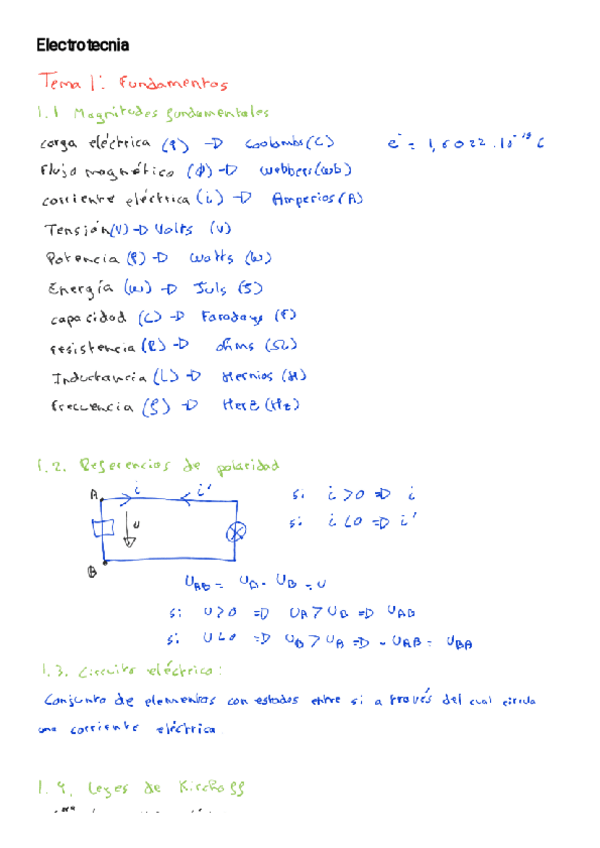 Electrotecnia
Tema 1: Fundamentos
1.1 Magnitudes fundamentales
carga eléctrica (q) → Coolombs (C) e⁻ = 1,6022.10⁻¹⁹ C
Flujo magnético (Φ) → Webbers (wb)
corriente eléctrica (i) → Amperios (A)
Tensión (V) → Volts (V)
Potencia (P) → Watts (W)
Energía (w) → Juls (J)
capacidad (C) → Faradays (F)
resistencia (R) → ohms (Ω)
Inductancia (L) → Hernios (H)
frecuencia (f) → Herz (Hz)
1.2. Referencias de polaridad
A i i'
si i > 0 ⇒ i
si i < 0 ⇒ i'
u
B
U_AB = U_A - U_B = U
si U > 0 ⇒ U_A > U_B ⇒ U_AB
si U < 0 ⇒ U_B > U_A ⇒ - U_AB = U_BA
1.3. Circuito eléctrico:
Conjunto de elementos conestados entre si a través del cual circula
una corriente eléctrica
1.4. Leyes de Kirchoff